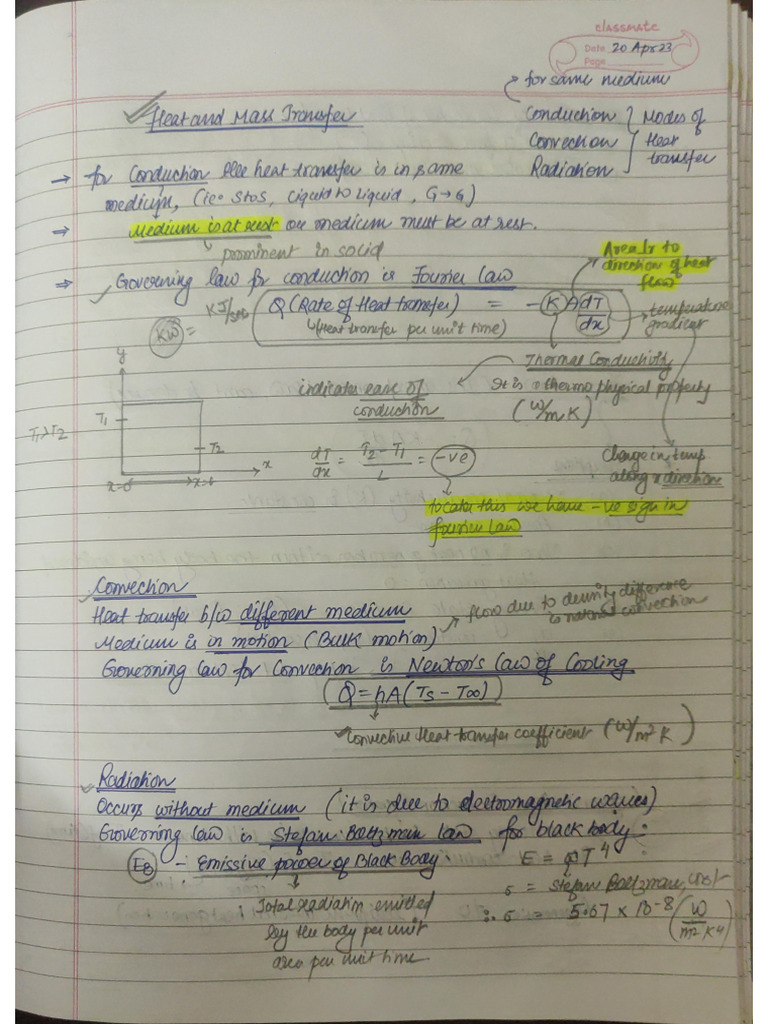 classmate
Date 20 Apr 23
Page
for same medium
Heat and Mass Transfer
Conduction } Modes of
Convection } Heat
Radiation } transfer
→ for Conduction the heat transfer is in same
medium, (ie. S to S, Liquid to Liquid, G→G)
→ Medium is at rest or medium must be at rest.
prominent in solid
Area ⊥r to
direction of heat
flow
→ Governing law for conduction is Fourier Law
KW = KJ/sec Q (Rate of Heat transfer) = -K A dT/dx
↳(Heat transfer per unit time)
temperature
gradient
Thermal Conductivity
It is a thermo physical property
(W/mK)
indicates ease of
conduction
y
T1
T1>T2
T2
x
x=0
x=L
dT/dx = T2 - T1/L = -ve
Change in temp
along x direction
to cater this we have -ve sign in
fourier Law
Convection
Heat transfer b/w different medium
flow due to density difference
is natural convection
Medium is in motion (Bulk motion)
Governing law for Convection is Newton's Law of Cooling
Q = hA(Ts - T∞)
Convective Heat transfer coefficient (W/m²K)
Radiation
Occurs without medium (it is due to electromagnetic waves)
Governing law is Stefan Boltzman law for black body:
EB - Emissive power of Black Body:
E = σT⁴
σ = Stefan Boltzman const
∴ σ = 5.67 × 10-8 (W/m²K4)
: Total radiation emitted
by the body per unit
area per unit time.